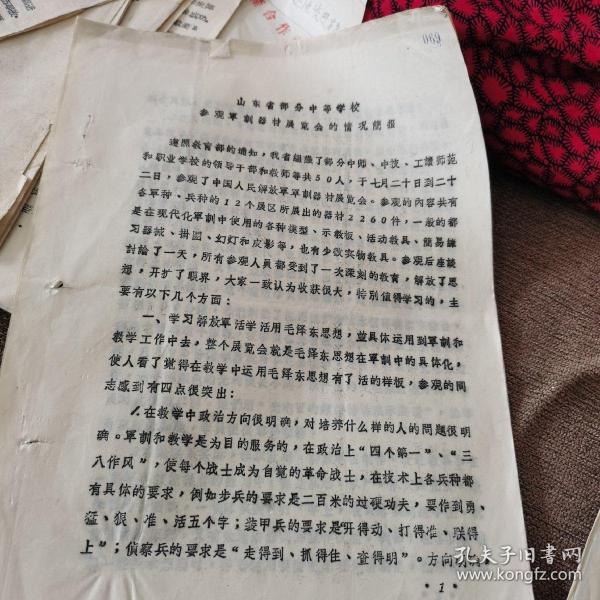 069
山东省部分中等学校
参观軍訓器材展览会的情况簡报
遵照教育部的通知，我省組織了部分中师、中技、工讀师范
和职业学校的领导干部和教师等共50人，于七月二十日到二十
二日，参观了中国人民解放軍軍訓器材展览会。参观的内容共有
各軍种、兵种的12个展区所展出的器材2260件，一般的都
是在现代化軍訓中使用的各种模型、示教板、活动教具、簡易練
习器械、挂图、幻灯和皮影等，也有少数实物教具。参观后座談
討論了一天，所有参观人員都受到了一次深刻的教育，解放了思
想，开扩了眼界，大家一致认为收获很大，特别值得学习的，主
要有以下几个方面：
一、学习解放軍活学活用毛泽东思想，並具体运用到軍訓和
教学工作中去，整个展览会就是毛泽东思想在軍訓中的具体化，
使人看了觉得在教学中运用毛泽东思想有了活的样板，参观的同
志感到有四点很突出：
1.在教学中政治方向很明确，对培养什么样的人的問題很明
确。軍訓和教学是为目的服务的，在政治上“四个第一”、“三
八作风”，使每个战士成为自觉的革命战士，在技术上各兵种都
有具体的要求，例如步兵的要求是二百米的过硬功夫，要作到勇、
猛、狠、准、活五个字；装甲兵的要求是“开得动、打得准、联得
上”；偵察兵的要求是“走得到、抓得住、查得明”。方向明确，
·1·
孔夫子旧书网
www.kongfz.com